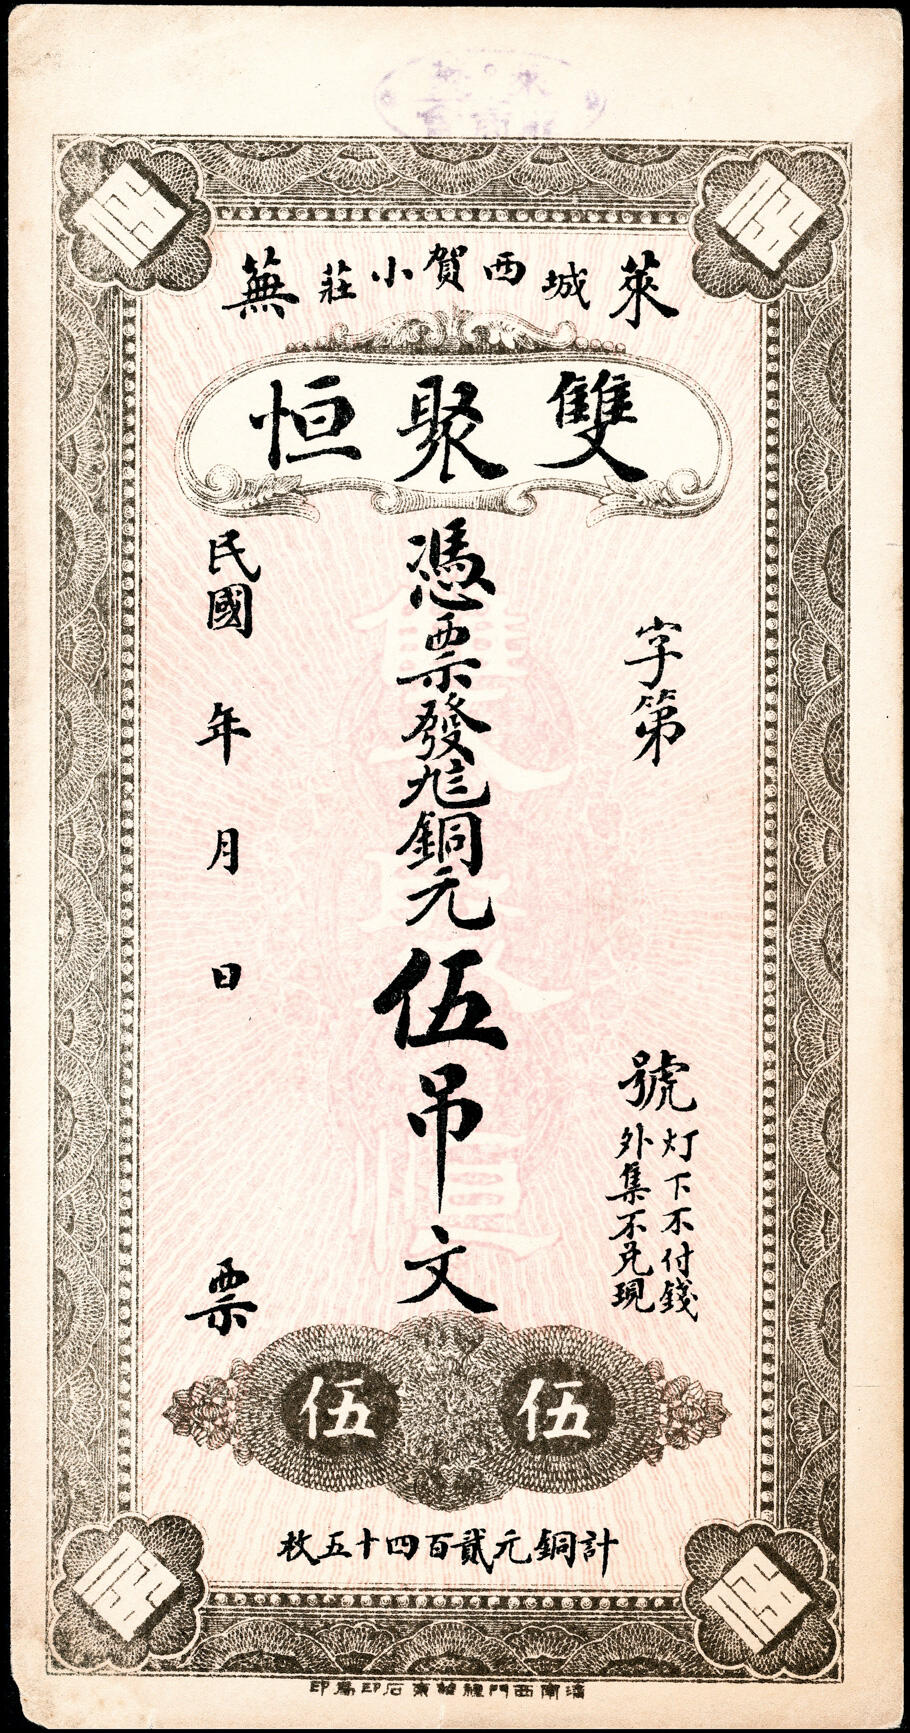 萊城西賀小莊蕪
雙聚恒
字第
號
灯下不付錢
外集不兑現
憑票發九〨銅元
伍吊文
民國
年
月
日
票
雙聚恒
伍
伍
伍
伍
伍
伍
計銅元貳百四十五枚
濟南西門裡東石印局印